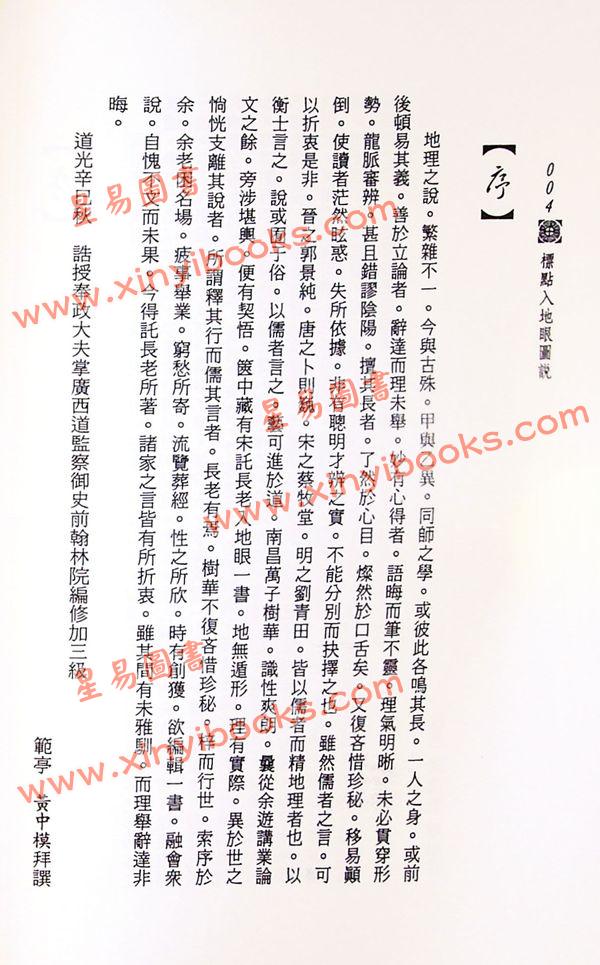 004 標點入地眼圖說
【序】
地理之說。繁雜不一。今與古殊。甲與乙異。同師之學。或彼此各鳴其長。一人之身。或前
後頓易其義。善於立論者。辭達而理未舉。妙有心得者。語晦而筆不靈。理氣明晰。未必貫穿形
勢。龍脈審辨。甚且錯謬陰陽。擅其長者。了然於心目。燦然於口舌矣。又復吝惜珍秘。移易顛
倒。使讀者茫然眩惑。失所依據。非有聰明才辨之實。不能分別而抉擇之也。雖然儒者之言。可
以折衷是非。晉之郭景純。唐之卜則巍。宋之蔡牧堂。明之劉青田。皆以儒者而精地理者也。以
衡士言之。說或囿于俗。以儒者言之。藝可進於道。南昌萬子樹華。識性爽朗。曩從余遊講業論
文之餘。旁涉堪輿。便有契悟。篋中藏有宋託長老入地眼一書。地無遁形。理有實際。異於世之
惝恍支離其說者。所謂釋其行而儒其言者。長老有焉。樹華不復吝惜珍秘。梓而行世。索序於
余。余老困名場。疲事舉業。窮愁所寄。流覽葬經。性之所欣。時有創獲。欲編輯一書。融會衆
說。自愧不文而未果。今得託長老所著。諸家之言皆有所折衷。雖其間有未雅馴。而理舉辭達非
晦。
道光辛巳秋 誥授奉政大夫掌廣西道監察御史前翰林院編修加三級
範亭 黃中模拜譔
星易圖書
www.xinyibooks.com
星易圖書
www.xinyibooks.com
星易圖書
www.xinyibooks.com